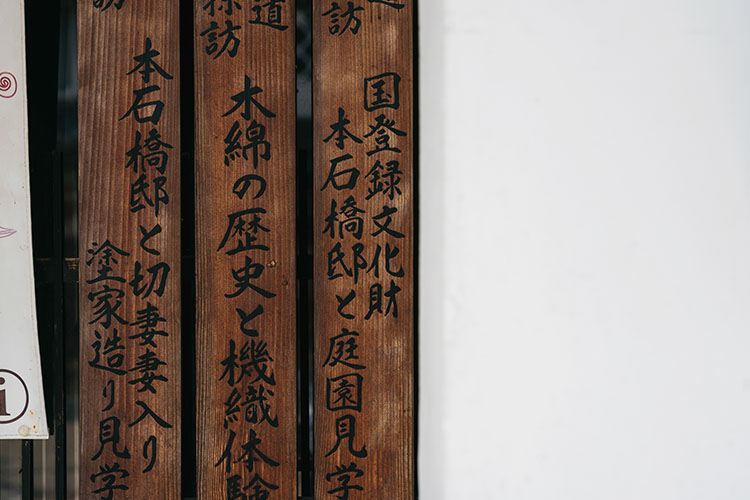 道
訪
国登録文化財
本石橋邸と庭園見学
道
探訪
木綿の歴史と機織体験
訪
本石橋邸と切妻妻入り
塗家造り見学
i